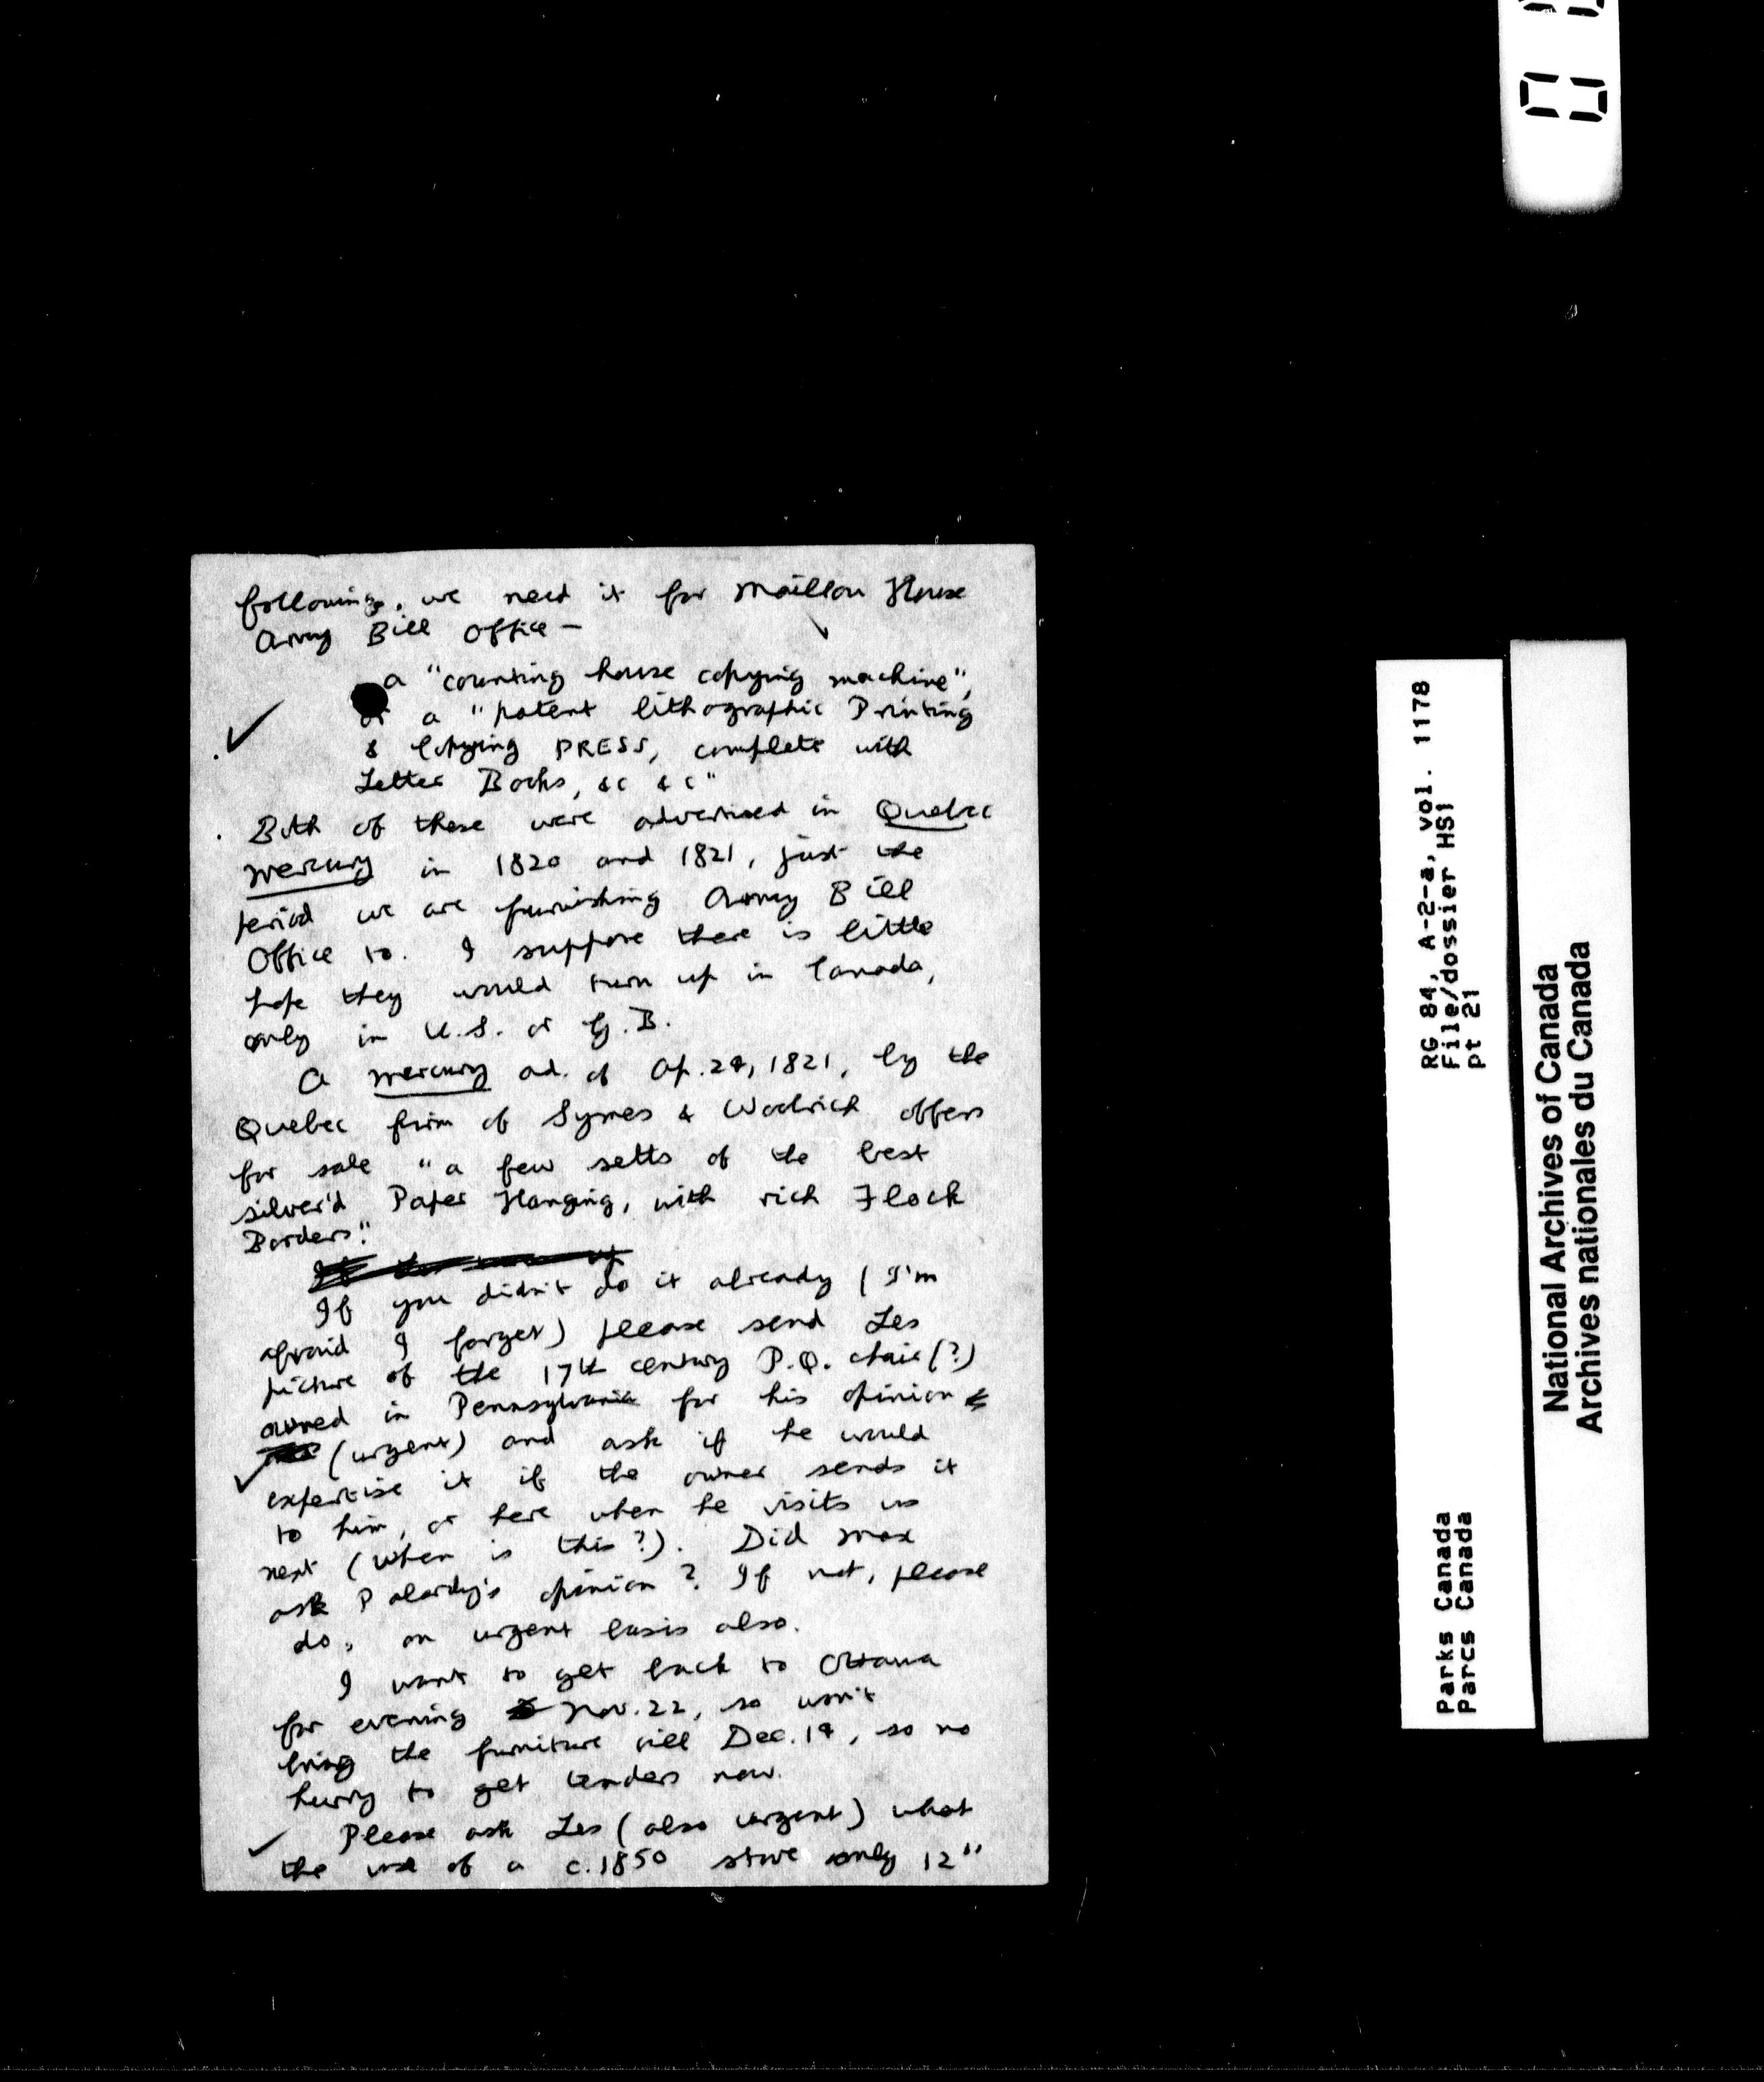 following, we need it for Maillou House
Army Bill Office —
a "counting house copying machine",
or a "patent lithographic Printing
& Copying PRESS, complete with
Letter Books, &c &c"
Both of these were advertised in Quebec
Mercury in 1820 and 1821, just the
period we are furnishing Army Bill
Office to. I suppose there is little
hope they would turn up in Canada,
only in U.S. or G.B.
A Mercury ad. of Ap. 24, 1821, by the
Quebec firm of Symes & Woolrich offers
for sale "a few setts of the best
silver'd Paper Hanging, with rich Flock
Borders."
If you didn't do it already (I'm
afraid I forget) please send Les
picture of the 17th century P.Q. chair (?)
owned in Pennsylvania for his opinion
(urgent) and ask if he would
expertise it if the owner sends it
to him, or here when he visits us
next (when is this?). Did Max
ask Palardy's opinion? If not, please
do, on urgent basis also.
I want to get back to Ottawa
for evening Nov. 22, so won't
bring the furniture till Dec. 14, so no
hurry to get tenders now.
Please ask Les (also urgent) what
the use of a c. 1850 stove only 12"
RG 84, A-2-a, vol. 1178
File/dossier HS1
pt 21
Parks Canada
Parcs Canada
National Archives of Canada
Archives nationales du Canada